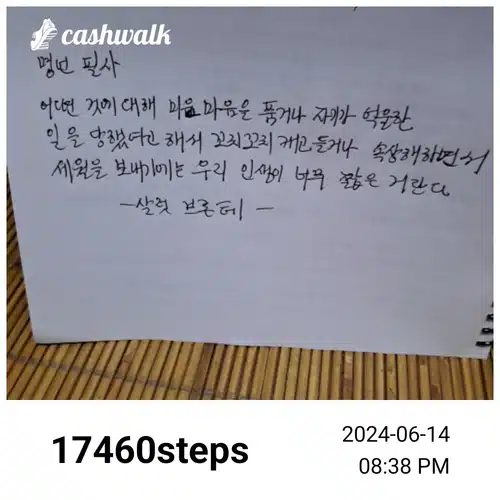 cashwalk
명언 필사
어떤 것에 대해 마음을 품거나 자기가 억울한
일을 당했다고 해서 꼬치꼬치 캐고 들거나 속상해하면서
세월을 보내기에는 우리 인생이 너무 짧은 거란다
-샬럿 브론테-
17460steps
2024-06-14
08:38 PM